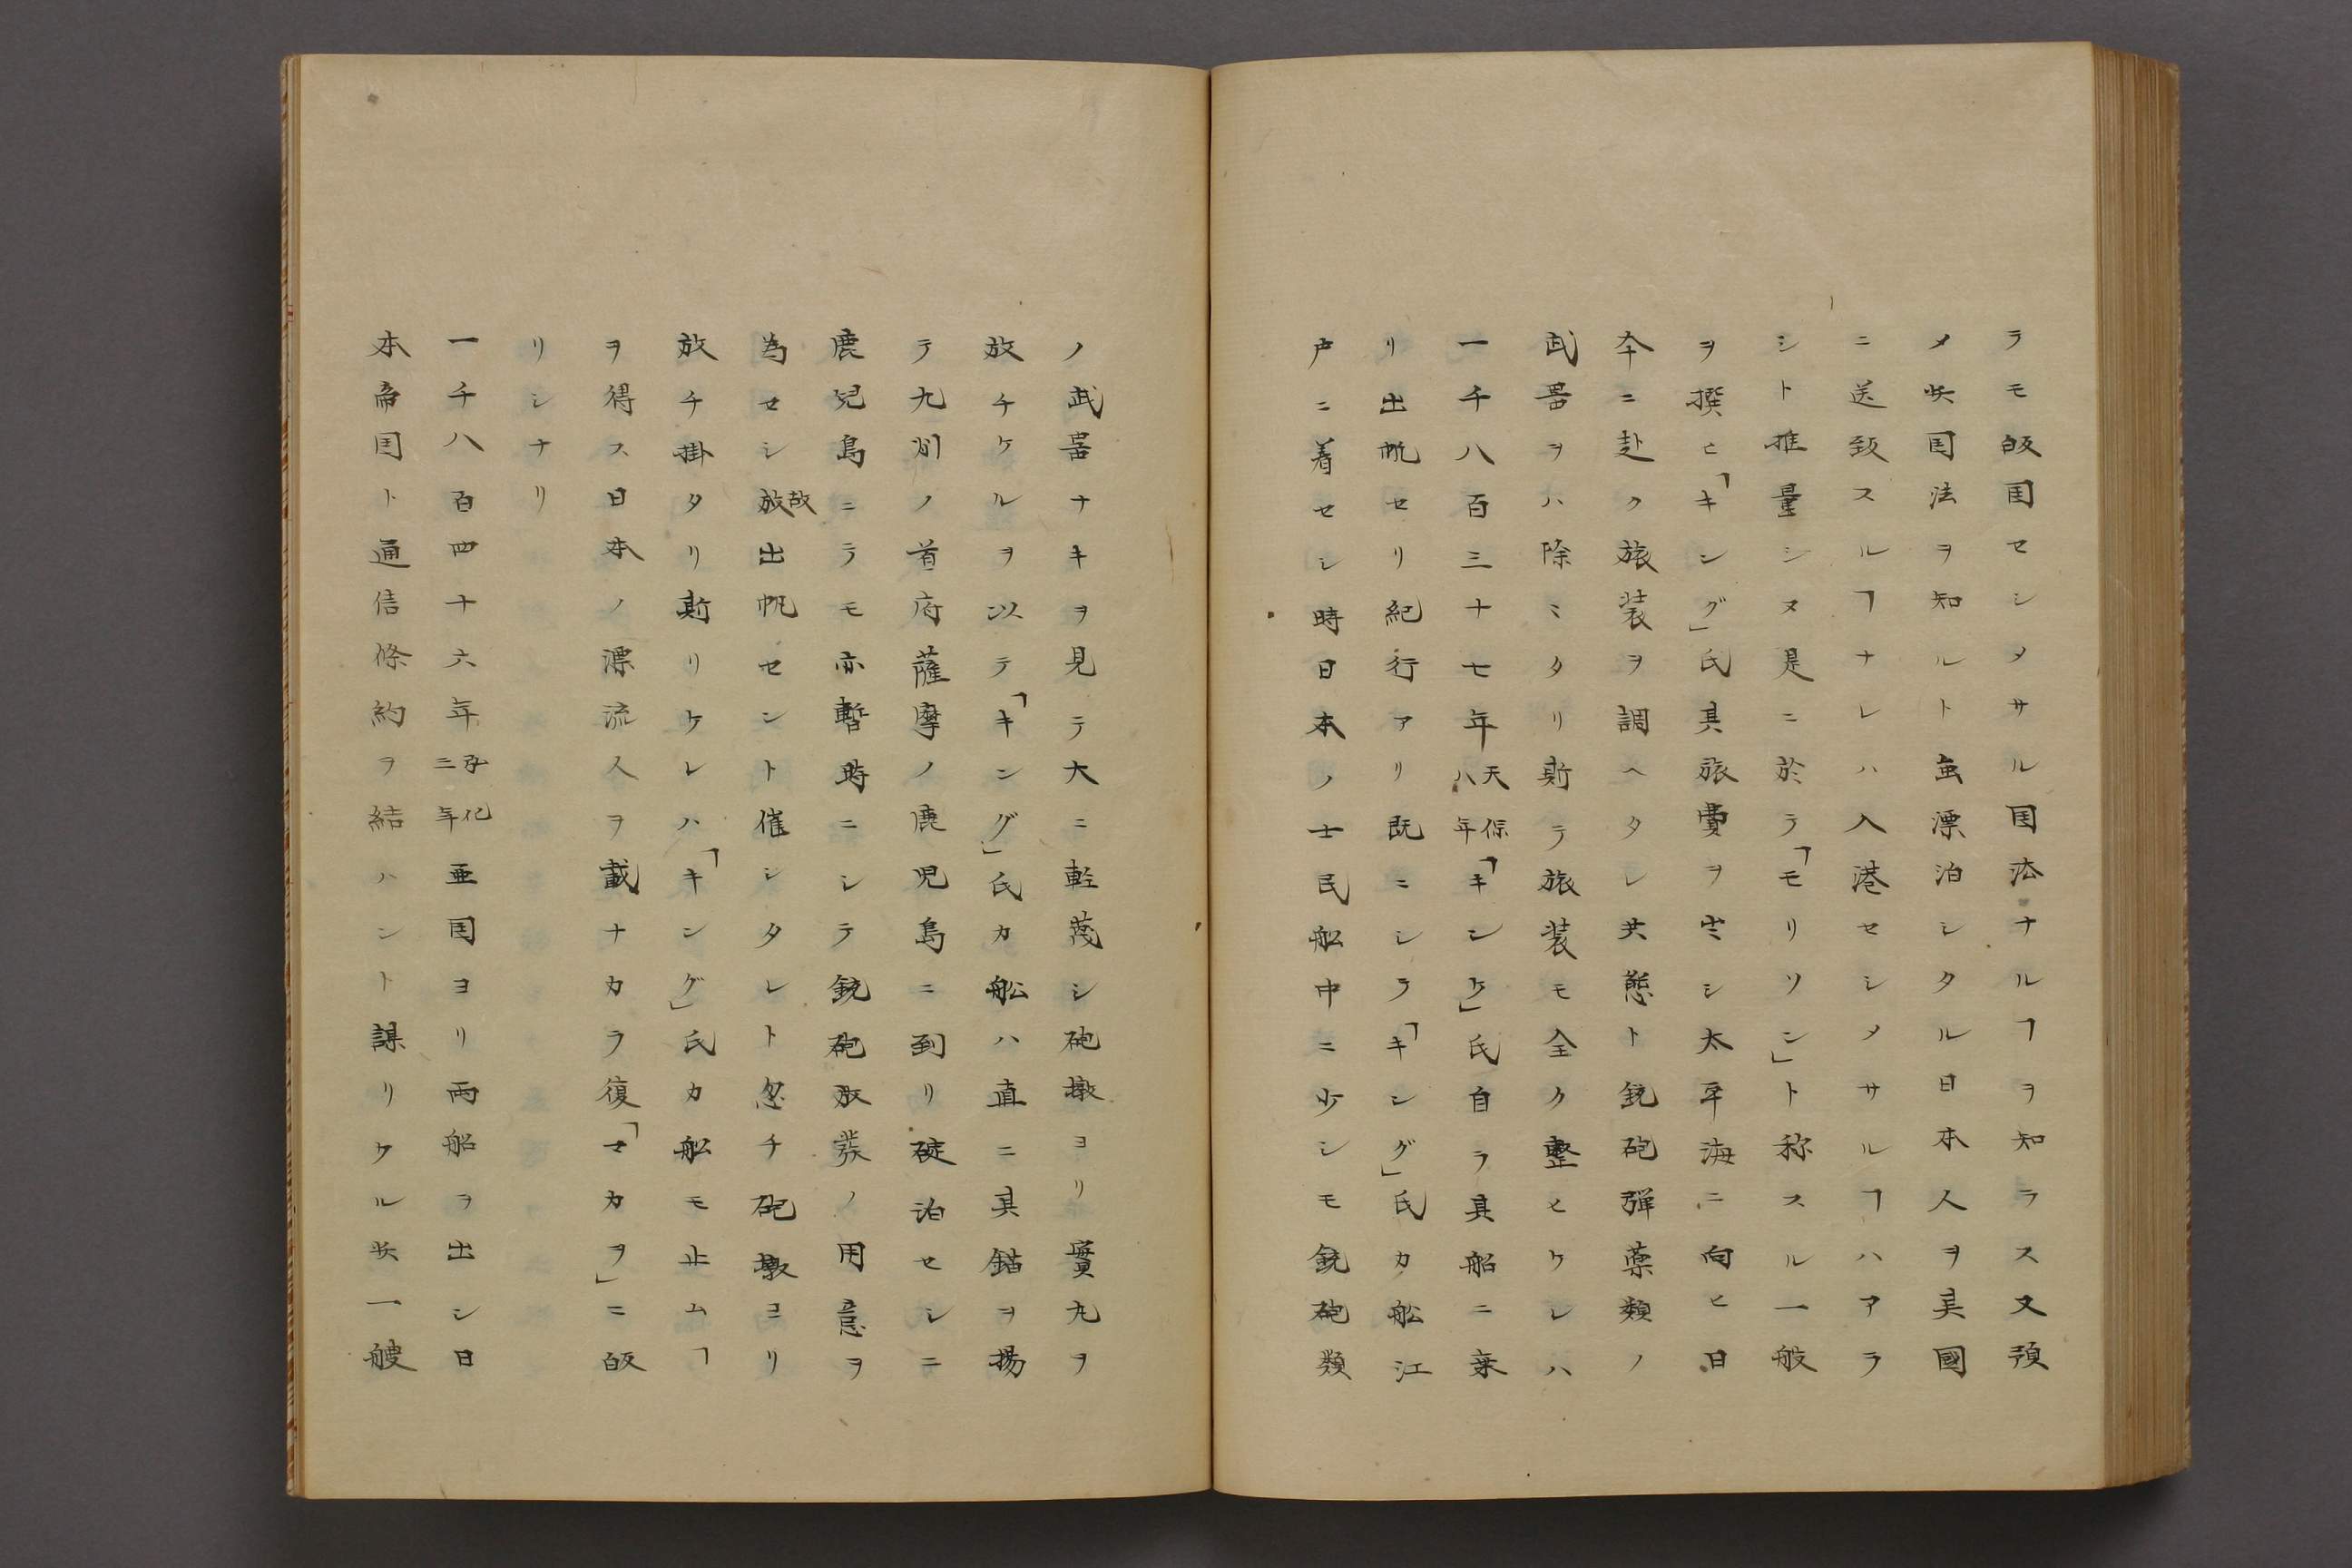 ラモ皈国セシメサル国法ナルヿヲ知ラス又預
メ此国法ヲ知ルト虽漂泊シタル日本人ヲ其國
ニ送致スルヿナレハ入港セシメサルヿハアラ
シト推量シヌ是ニ於テ「モリソン」ト称スル一般
ヲ撰ヒ「キング」氏其旅費ヲ出シ太平海ニ向ヒ日
本ニ赴ク旅装ヲ調ヘタレ共態ト銃砲弾藥類ノ
武器ヲハ除ミタリ斯テ旅装モ全ク整ヒケレハ
一千八百三十七年天保八年「キンク」氏自ラ其船ニ乗
リ出帆セリ紀行アリ既ニシテ「キング」氏カ船江
戸ニ着セシ時日本ノ士民船中ニ少シモ銃砲類
ノ武器ナキヲ見テ大ニ軽蔑シ砲墩ヨリ實丸ヲ
放チケルヲ以テ「キング」氏カ船ハ直ニ其錨ヲ揚
テ九州ノ首府薩摩ノ鹿児島ニ到リ碇泊セシニ
鹿児島ニテモ亦暫時ニシテ銃砲放発ノ用意ヲ
為セシ放故出帆セント催シタレト忽チ砲墩ヨリ
放チ掛タリ斯リケレハ「キング」氏カ船モ止ムヿ
ヲ得ス日本ノ漂流人ヲ載ナカラ復「マカヲ」ニ皈
リシナリ
一千八百四十六年弘化三年亜国ヨリ両船ヲ出シ日
本帝国ト通信條約ヲ結ハント謀リケル此一艘